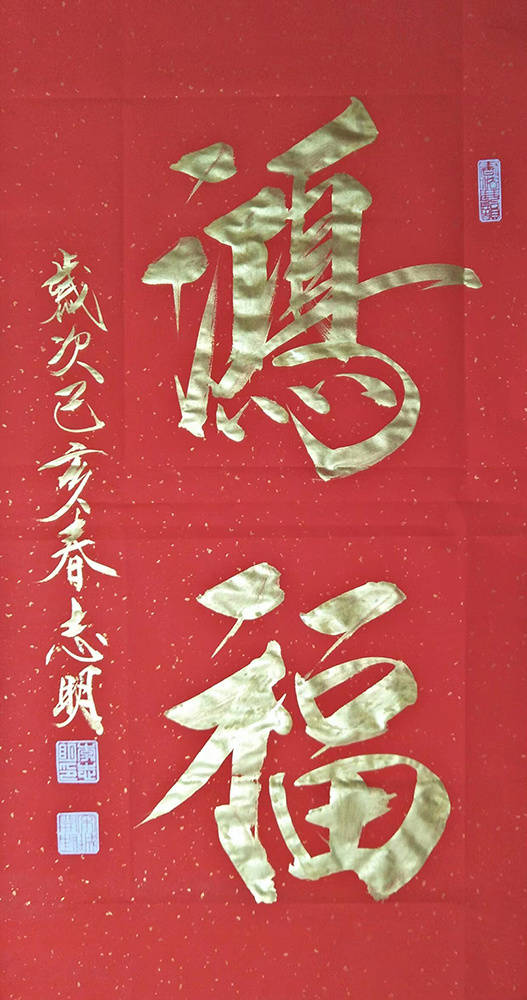 鴻福
歲次己亥春志明